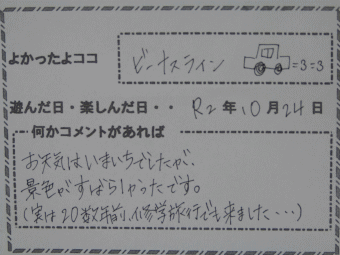 よかったよココ ビーナスライン =3=3
遊んだ日・楽しんだ日・・ R2年10月24日
何かコメントがあれば
お天気はいまいちでしたが、
景色がすばらしかったです。
(実は20数年前、修学旅行でも来ました・・・)